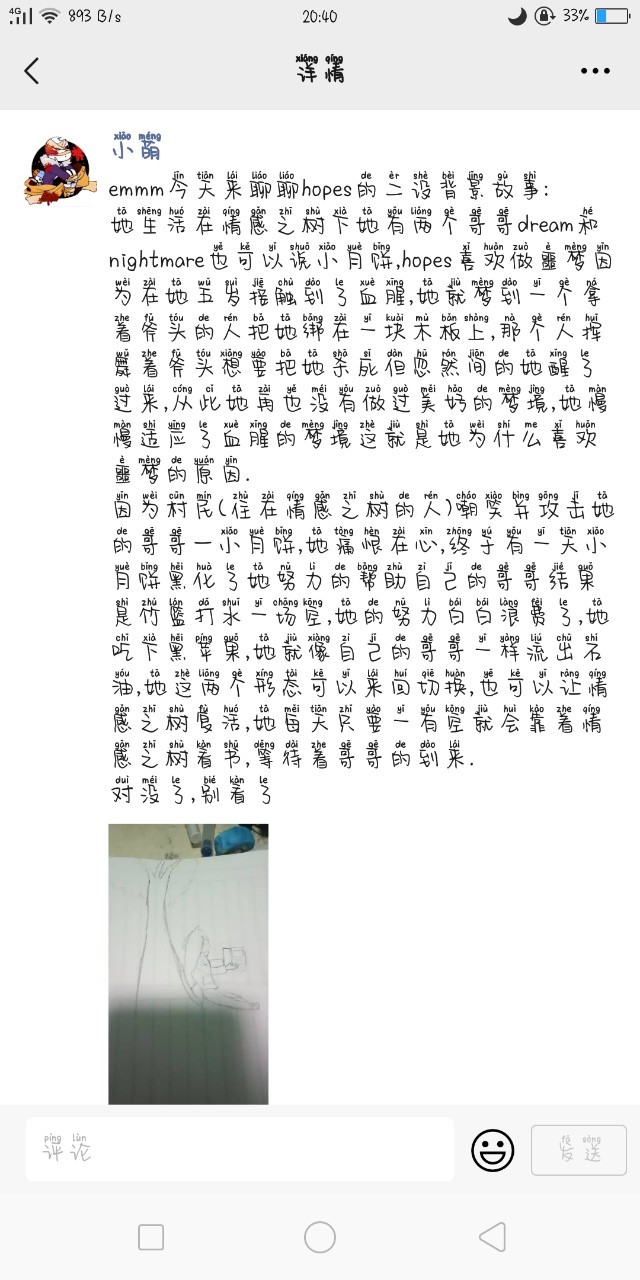 4G 893 B/s 20:40 33%
详情
小萌
emmm今天来聊聊hopes的二设背景故事:
她生活在情感之树下她有两个哥哥dream和
nightmare也可以说小月饼,hopes喜欢做噩梦因
为在她五岁接触到了血腥,她就梦到一个拿
着斧头的人把她绑在一块木板上,那个人挥
舞着斧头想要把她杀死但忽然间的她醒了
过来,从此她再也没有做过美好的梦境,她慢
慢适应了血腥的梦境这就是她为什么喜欢
噩梦的原因.
因为村民(住在情感之树的人)嘲笑并攻击她
的哥哥一小月饼,她痛恨在心,终于有一天小
月饼黑化了她努力的帮助自己的哥哥结果
是竹篮打水一场空,她的努力白白浪费了,她
吃下黑苹果,她就像自己的哥哥一样流出石
油,她这两个形态可以来回切换,也可以让情
感之树复活,她每天只要一有空就会靠着情
感之树看书,等待着哥哥的到来.
对没了,别看了
评论
发送